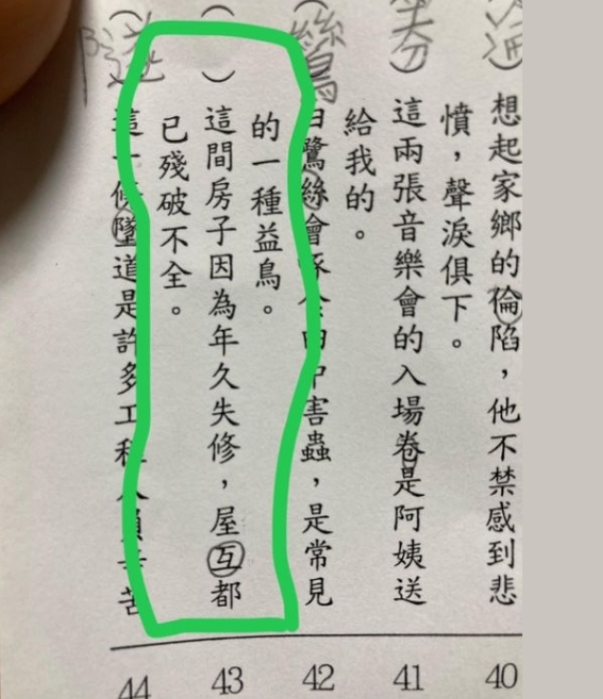 想起家鄉的倫陷，他不禁感到悲
憤，聲淚俱下。
40
(券)
這兩張音樂會的入場卷是阿姨送
給我的。
41
(鷥)
白鷺絲會啄食田中害蟲，是常見
的一種益鳥。
42
( )
這間房子因為年久失修，屋互都
已殘破不全。
43
(隧)
這一條墜道是許多工程人員辛苦
44